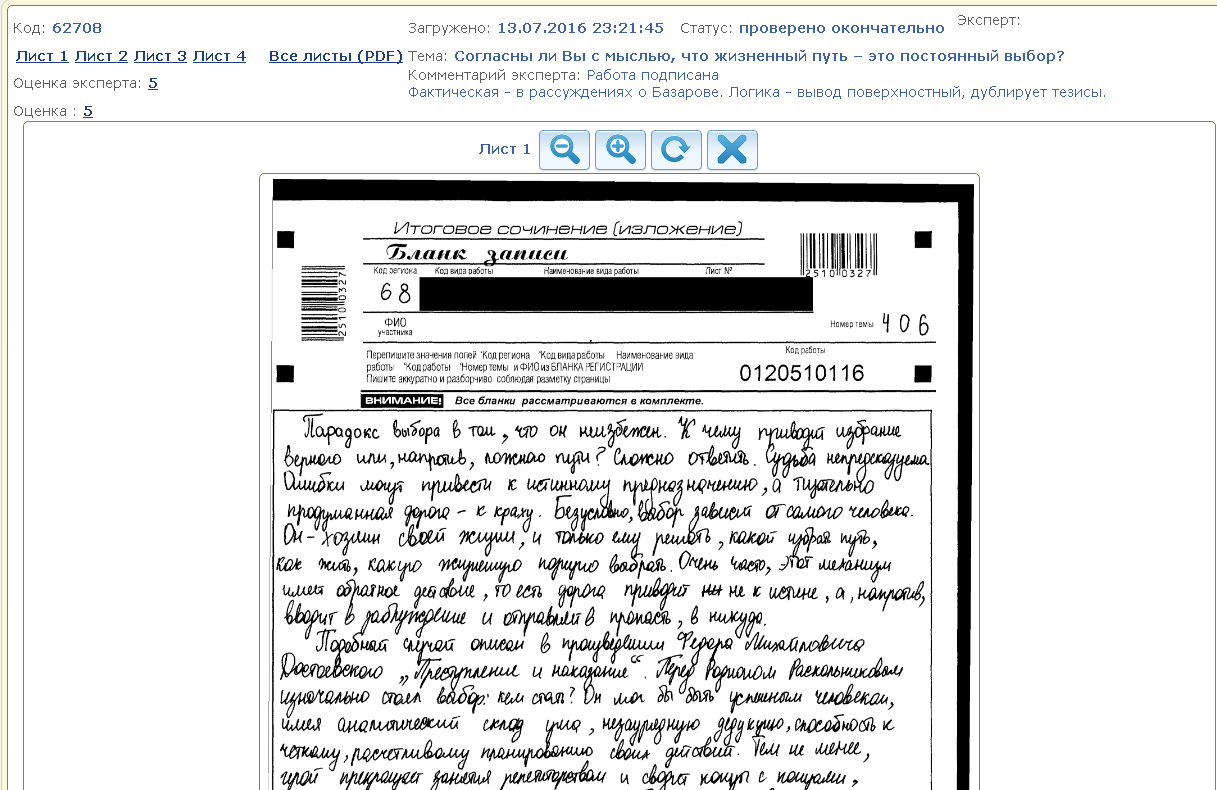 Код: 62708
Загружено: 13.07.2016 23:21:45 Статус: проверено окончательно Эксперт:
Лист 1 Лист 2 Лист 3 Лист 4 Все листы (PDF) Тема: Согласны ли Вы с мыслью, что жизненный путь – это постоянный выбор?
Оценка эксперта: 5
Комментарий эксперта: Работа подписана
Фактическая - в рассуждениях о Базарове. Логика - вывод поверхностный, дублирует тезисы.
Оценка : 5
Лист 1
Итоговое сочинение (изложение)
Бланк записи
Код региона Код вида работы Наименование вида работы Лист №
2510 0327
2510 0327
68
ФИО участника
Номер темы 406
Перепишите значения полей "Код региона "Код вида работы Наименование вида
работы "Код работы "Номер темы и ФИО из БЛАНКА РЕГИСТРАЦИИ
Пишите аккуратно и разборчиво соблюдая разметку страницы
Код работы
0120510116
ВНИМАНИЕ! Все бланки рассматриваются в комплекте.
Парадокс выбора в том, что он неизбежен. К чему приводит избрание
верного или, напротив, ложного пути? Сложно ответить. Судьба непредсказуема.
Ошибки могут привести к истинному предназначению, а тщательно
продуманная дорога - к краху. Безусловно, выбор зависит от самого человека.
Он - хозяин своей жизни, и только ему решать, какой избрать путь,
как жить, какую жизненную позицию выбрать. Очень часто, этот механизм
имеет обратное действие, то есть дорога приводит не к истине, а, напротив,
вводит в заблуждение и отправляет в пропасть, в никуда.
Подобный случай описан в произведении Федора Михайловича
Достоевского „Преступление и наказание“. Перед Родионом Раскольниковым
изначально стоял выбор: кем стать? Он мог бы быть успешным человеком,
имея аналитический склад ума, незаурядную дедукцию, способность к
четкому, расчетливому планированию своих действий. Тем не менее,
герой прекращает занятия репетиторством и сводит концы с концами,